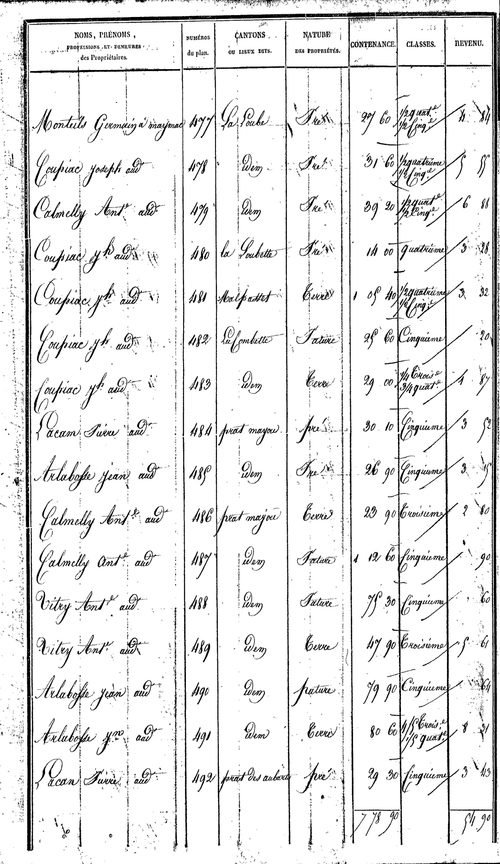 NOMS, PRÉNOMS, PROFESSIONS ET DEMEURES des Propriétaires. NUMÉROS du plan. CANTONS OU LIEUX DITS. NATURE DES PROPRIÉTÉS. CONTENANCE. CLASSES. REVENU.
Monteils Germain à maymac 477 La Loube Pre 27 60 1/2 quat.e 1/2 Cinq.e 4 84
Coupiac Joseph aud 478 idem Pre 31 60 1/2 quatrième 1/2 Cinq.e 5 55
Calmelly Ant.e aud 479 idem Pre 39 20 1/2 quat.e 1/2 Cinq.e 6 88
Coupiac jh aud 480 la Loubette Pre 14 00 quatrième 3 28
Coupiac jh aud 481 Malpasset Terre 1 05 40 1/2 quatrième 1/2 Cinq.e 3 32
Coupiac jh aud 482 La Combette Pature 25 60 Cinquième 20
Coupiac jh aud 483 idem Terre 29 00 1/4 Trois.e 3/4 quat.e 1 87
Lacam Pierre aud 484 prat mayou pre 30 10 Cinquième 3 52
Arlabosse jean aud 485 idem Pre 26 90 Cinquième 3 15
Calmelly Ant.e aud 486 prat majou Terre 23 90 Troisième 2 80
Calmelly Ant.e aud 487 idem Pature 1 12 60 Cinquième 90
Vitry Ant.e aud 488 idem Pature 75 30 Cinquième 60
Vitry Ant.e aud 489 idem Terre 47 90 Troisième 5 61
Arlabosse jean aud 490 idem pature 79 90 Cinquième 64
Arlabosse jn aud 491 idem Terre 80 60 4/5 Trois.e 1/5 quat.e 8 21
Lacan Pierre aud 492 prat des aubars pre 29 30 Cinquième 3 43
7 78 90 54 90